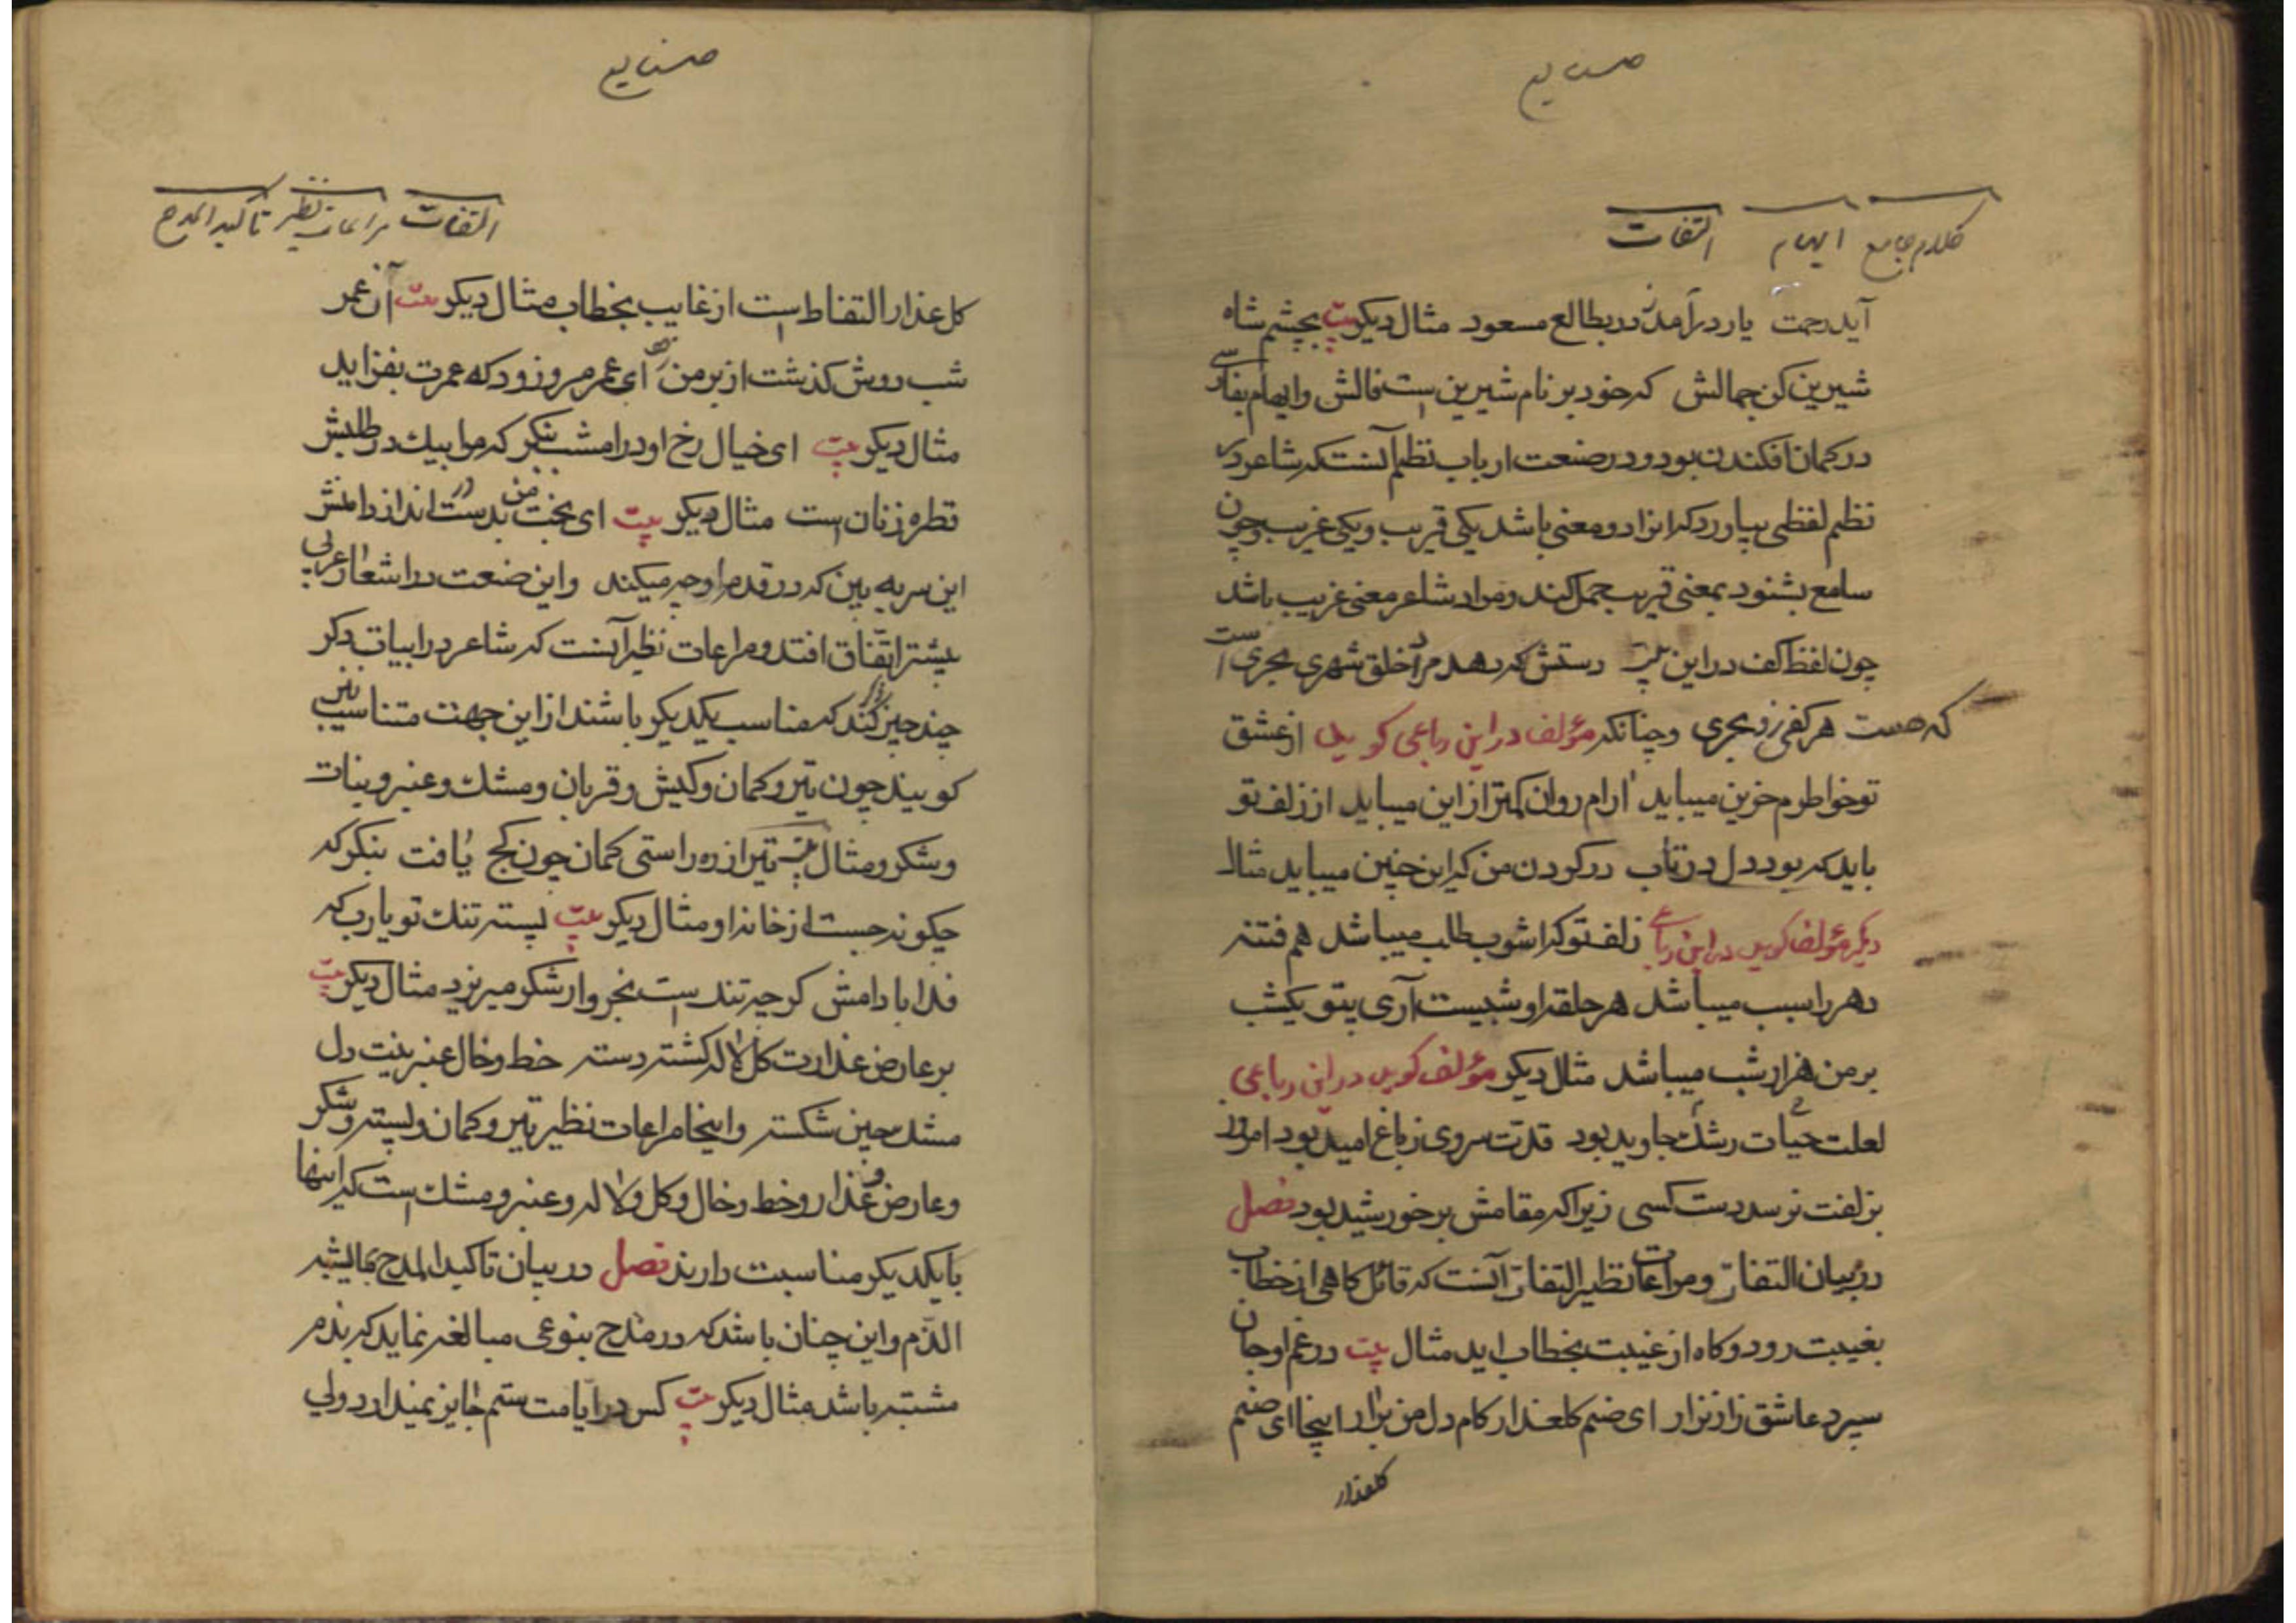 صنایع
کلام جامع ایهام التفات
آید رحمت یار درآمد ز در بطالع مسعود مثال دیکر بیت بچشم شاه
شیرین کن جمالش که خود بر نام شیرین است فالش وایهام بفارسی
در کمان افکندن بود و در صنعت ارباب نظم آنست که شاعر در
نظم لفظی بیاورد که انرا دو معنی باشد یکی قریب ویکی غریب وچون
سامع بشنود بمعنی قریب حمل کند ومراد شاعر معنی غریب باشد
چون لفظ کف دراین بیت دستش که دهد مراد خلق شهری بحری است
که هست هر کفی زو بحری وچنانکه مؤلف دراین رباعی کوید از عشق
تو خواطرم حزین میباید ارام روان کمتر از این میباید از زلف تو
باید که بود دل در تاب در کردن من که این چنین میباید مثال
دیکر مؤلف کوید در این رباعی زلف تو که اشوب طلب میباشد هم فتنه
دهر را سبب میباشد هر حلقه او شبیست آری بتو یکشب
بر من هزار شب میباشد مثال دیکر مؤلف کوید در این رباعی
لعلت حیات رشک جاوید بود قدت سروی ز باغ امید بود امروز
بزلفت نرسد دست کسی زیرا که مقامش بر خورشید بود فصل
در بیان التفات ومراعات نظیر التفات آنست که قائل کاهی از خطاب
بغیبت رود وکاه از غیبت بخطاب اید مثال بیت در غم او جان
سپرد عاشق زار نزار ای صنم کلعذار کام دل من برار اینجا ای صنم
کلعذار
صنایع
التفات مراعات نظیر تاکید المدح
کل عذار التفاط است از غایب بخطاب مثال دیکر بیت آن عمر
شب روش کذشت از بر من ای عمر مرو زود که عمرت بفزاید
مثال دیکر بیت ای خیال رخ او در امشب بنکر که مرا بیک در طلبش
قطره زنان است مثال دیکر بیت ای بخت من بدست در انداز دامنش
این سر به بین که در قدم او چه میکند واین صنعت در اشعار عربی
بیشتر اتفاق افتد ومراعات نظیر آنست که شاعر در ابیات ذکر
چند چیز کند که مناسب یکدیکر باشند از این جهت متناسب نیز
کویند چون تیر وکمان وکیش وقربان ومشک وعنبر ونبات
وشکر ومثال بیت تیر از ره راستی کمان چون کج یافت بنکر که
چکونه جست از خانه او مثال دیکر بیت پسته تنک تو یارب که
فدا بادامش کرچه تند است بخروار شکر میریزد مثال دیکر بیت
بر عارض عذارت کل لاله کشته دسته خط وخال عنبرینت دل
مشک چین شکسته واینجا مراعات نظیر تیر وکمان وپسته وشکر
وعارض وعذار وخط وخال وکل ولاله وعنبر ومشک است که اینها
بایکدیکر مناسبت دارند فصل در بیان تاکید المدح بمایشبه
الذم واین چنان باشد که در مدح بنوعی مبالغه نماید که بذم
مشتبه باشد مثال دیکر بیت کس در ایامت ستم جایز نمیدارد ولی